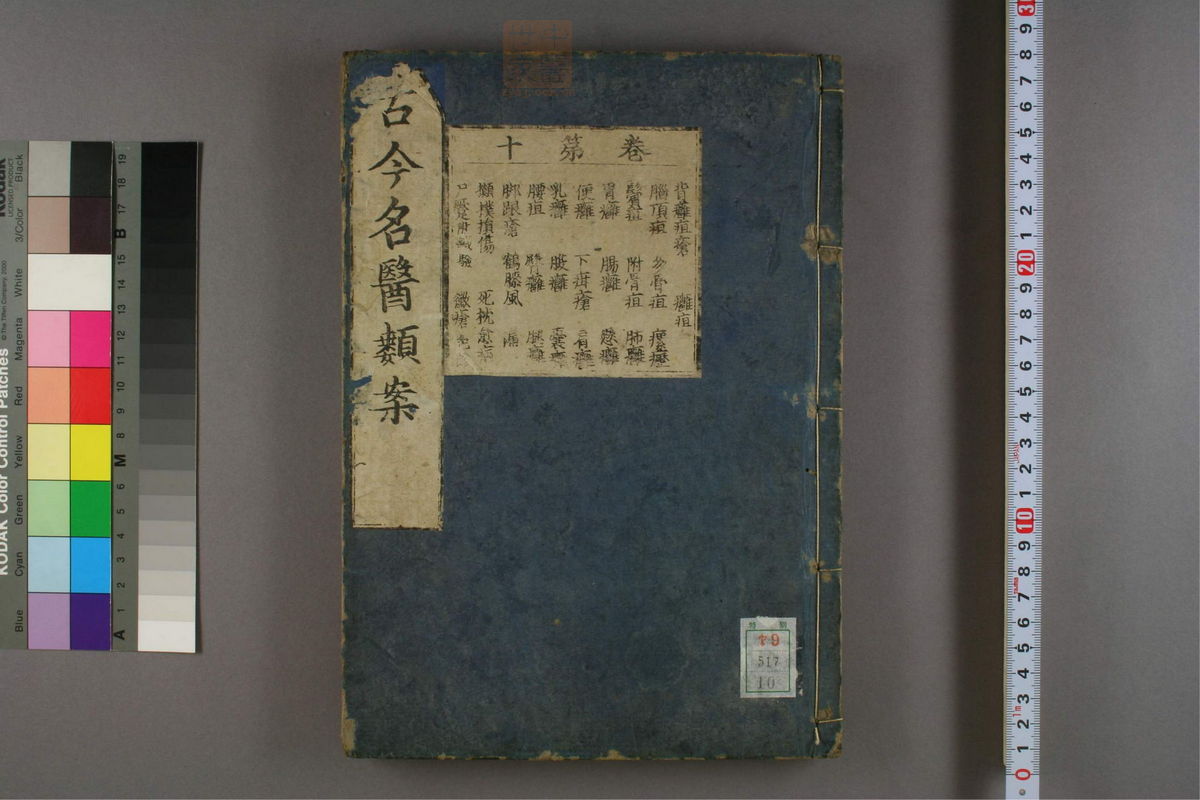 古今名醫類案
卷第十
背癰疽瘡 癰疽
腦頂疽 多骨疽
鬢疽 附骨疽 肺癰
胃癰 腸癰
便癰 下疳瘡
乳癰 腹癰 囊癰
腰疽 臂癰 腿癰
脚跟瘡 鶴膝風
攧撲損傷
驗 瘡
特別
ヤ9
517
10
Kodak
LICENSED PRODUCT
KODAK Color Control Patches
© The Tiffen Company, 2000
Blue
Cyan
Green
Yellow
Red
Magenta
White
3/Color
Black
A 1 2 3 4 5 6 M 8 9 10 11 12 13 14 15 B 17 18 19
0 1 2 3 4 5 6 7 8 9 10 1 2 3 4 5 6 7 8 9 20 1 2 3 4 5 6 7 8 9
1m